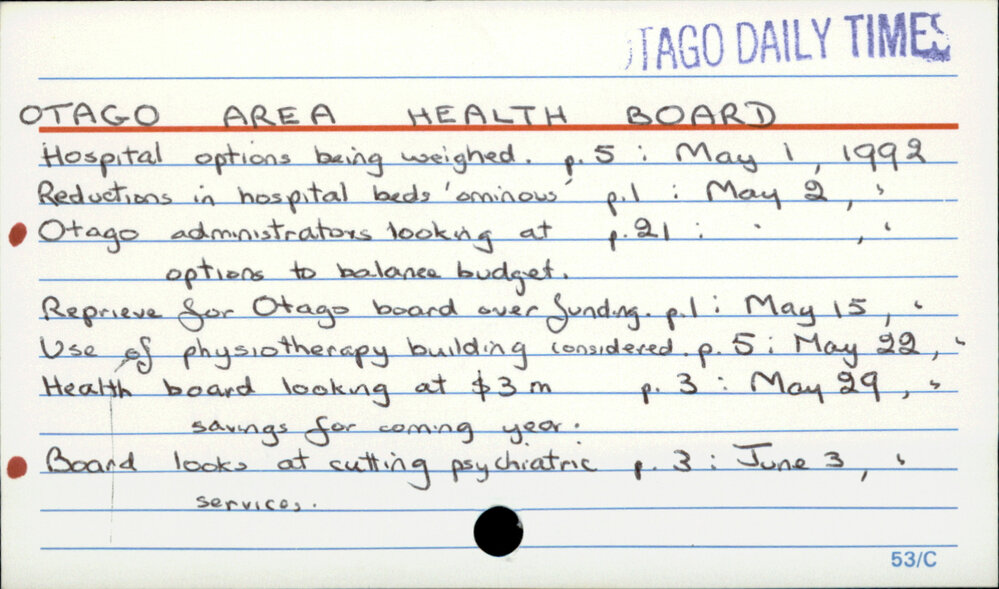 OTAGO DAILY TIMES
OTAGO AREA HEALTH BOARD
Hospital options being weighed. p. 5 : May 1, 1992
Reductions in hospital beds 'ominous' p.1 : May 2, "
Otago administrators looking at p. 21 : " , "
options to balance budget.
Reprieve for Otago board over funding. p.1 : May 15, "
Use of physiotherapy building considered. p. 5 : May 22, "
Health board looking at $3 m p. 3 : May 29, "
savings for coming year.
Board looks at cutting psychiatric p. 3 : June 3, "
services.
53/C